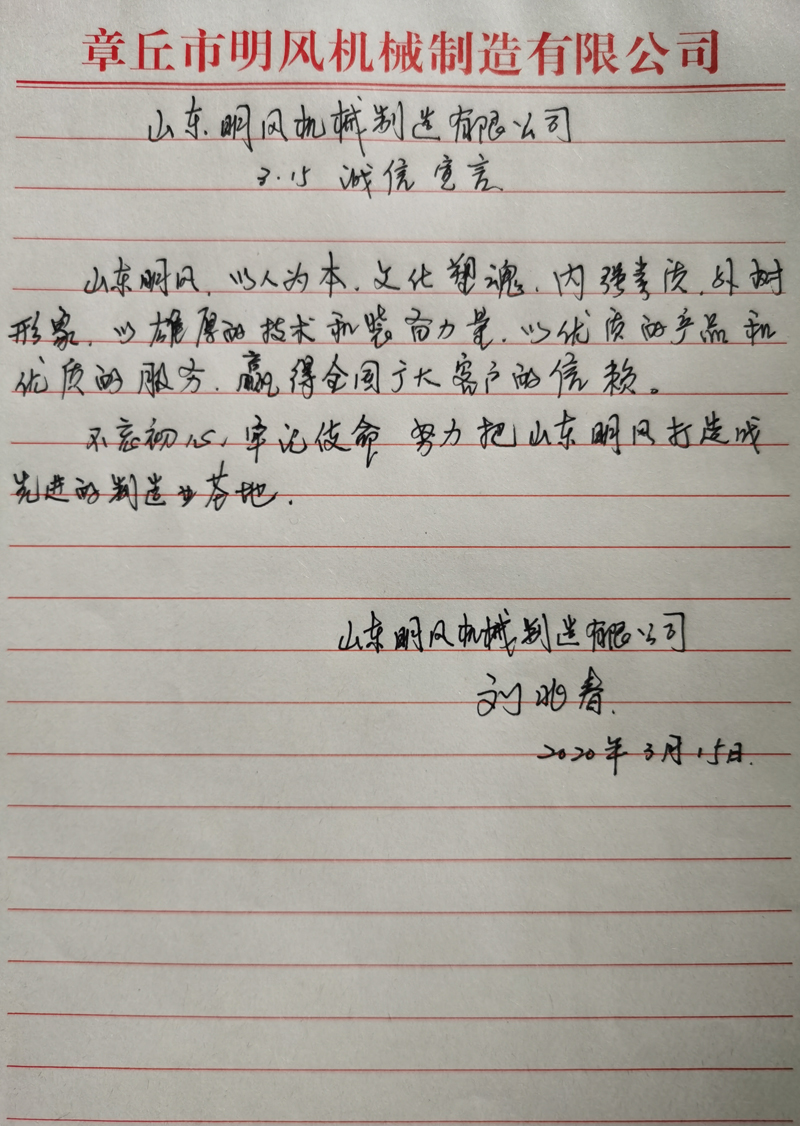 章丘市明风机械制造有限公司
山东明风机械制造有限公司
3.15 诚信宣言
山东明风，以人为本，文化塑魂，内强素质，外树
形象，以雄厚的技术和装备力量，以优质的产品和
优质的服务，赢得全国广大客户的信赖。
不忘初心，牢记使命 努力把山东明风打造成
先进的制造业基地.
山东明风机械制造有限公司
刘兆春.
2020年3月15日.